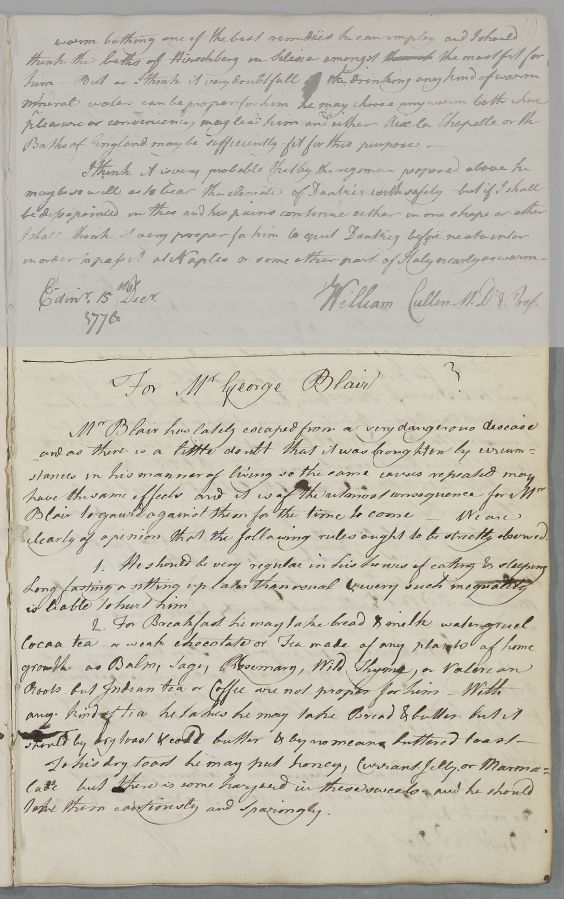 warm bathing one of the best remedies he can employ and I should
think the baths of Hirschberg in Silesia amongst the most fit for
him - But as I think it very doubtfull if the drinking any kind of warm
mineral water can be proper for him he may choose any warm bath where
pleasure or conveniency may lead him and either Aix la Chapelle or the
Baths of England may be sufficiently fit for this purpose -
I think it is very probable that by the regimen proposed above he
may be so well as to bear the climate of Dantzig with safety but if I shall
be dissapointed in this and his pains continue either in one shape or other
I shall think it very proper for him to quit Dantzig before next winter
in order to pass it at Naples or some other part of Italy nearly as warm -
Edinr. 15 Decr.
1776
William Cullen M.D. & Prof.
For Mr George Blair
Mr Blair has lately escaped from a very dangerous disease
and as there is a little doubt that it was brought on by circum-
stances in his manner of living so the same causes repeated may
have the same effects and it is of the utmost consequence for Mr
Blair to guard against them for the time to come - We are
clearly of opinion that the following rules ought to be strictly observed.
1. He should be very regular in his hours of eating & sleeping
Long fasting or sitting up later than usual & every such inequality
is liable to hurt him
2. For Breakfast he may take bread & milk water gruel
Cocoa tea or weak chocolate or Tea made of any plants of home
growth as Balm, Sage, Rosemary, Wild Thyme, or Valerian
Roots but Indian tea or Coffee are not proper for him - With
any kind of tea he takes he may take Bread & butter but it
should by dry toast & cold butter & by no means buttered toast -
To his dry toast he may put honey, Currant Jelly or Marma-
lade but there is some hazard in these sweets and he should
take them cautiously and sparingly.